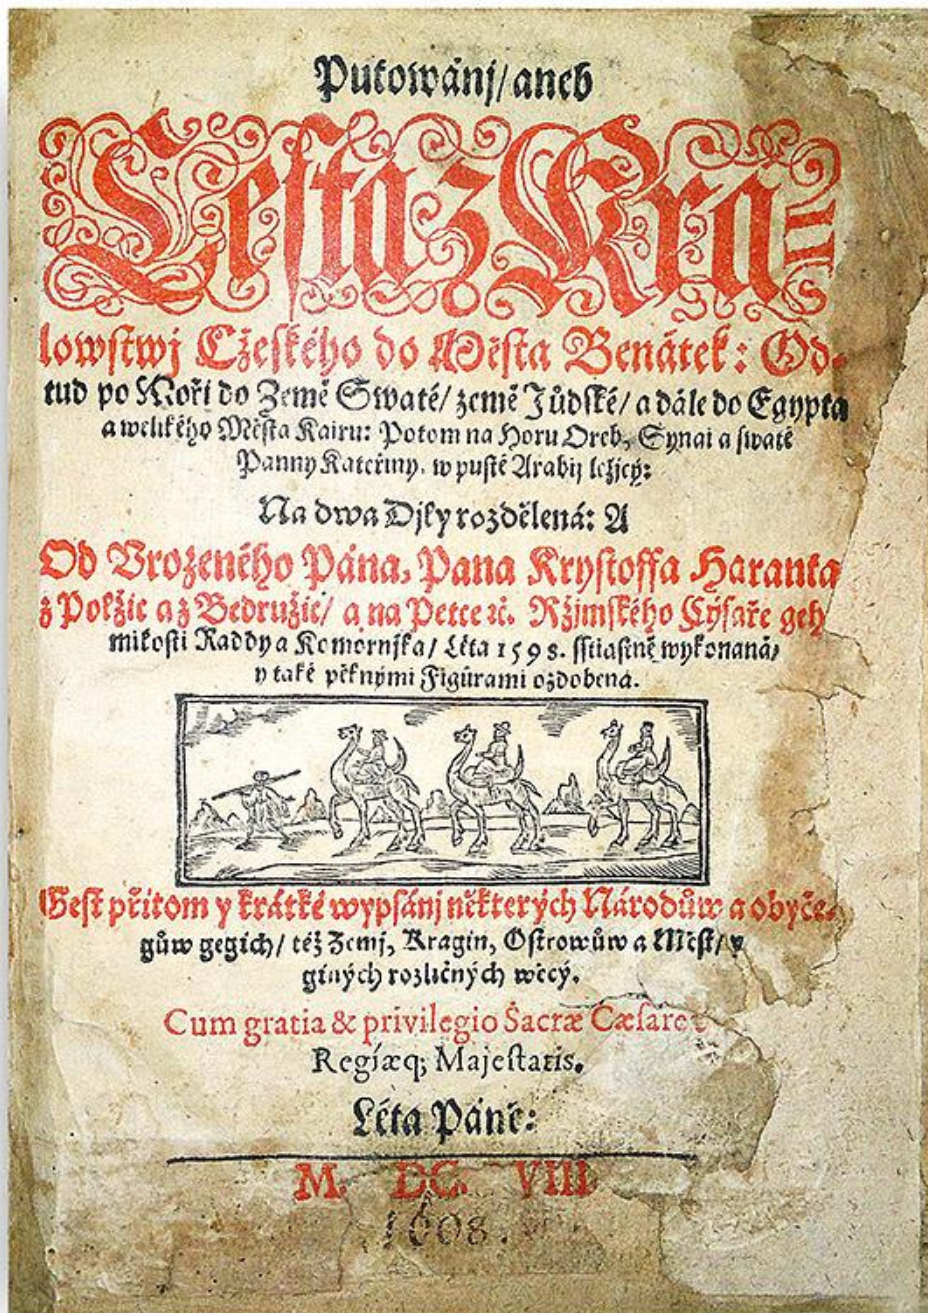 Putowánj/ aneb
Cesta z Krá-
lowstwj Cžeského do Města Benátek: Od-
tud po Moři do Země Swaté/ země Jůdské/ a dále do Egypta
a welikého Města Kairu: Potom na Horu Oreb, Synai a swaté
Panny Kateřiny, w pusté Arabij ležjcý:
Na dwa Djly rozdělená: A
Od Vrozeného Pána, Pana Krystoffa Haranta
z Polžic a z Bedružic/ a na Petce ꝛc. Ržjmského Cýsaře geh
milosti Raddy a Komornjka/ Léta 1598. sstiastně wykonaná/
y také pěknými Figůrami ozdobená.
Gest přitom y krátké wypsánj některých Národůw a obyče-
gůw gegich/ též Zemj, Kragin, Ostrowůw a Měst/ y
giných rozličných wěcý.
Cum gratia & privilegio Sacræ Cæsare
Regiæq; Majestatis.
Léta Páně:
M. DC. VIII
1608.